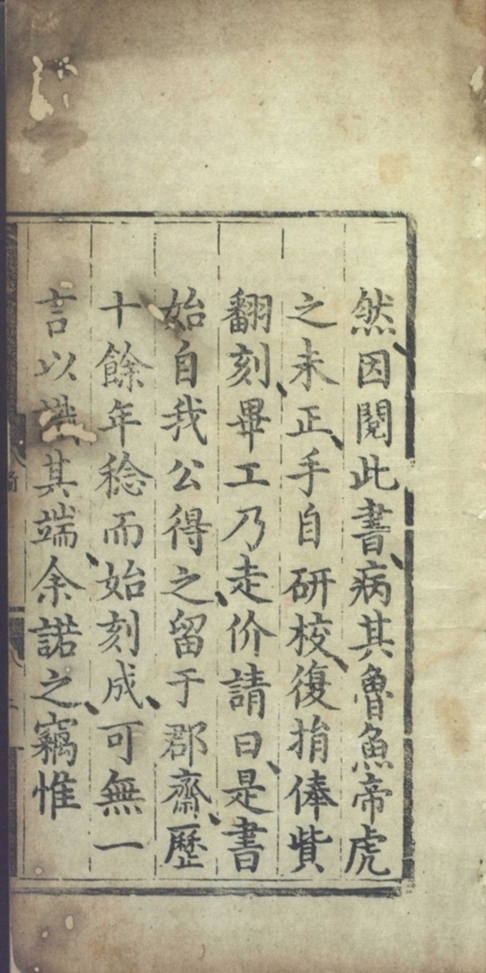 然因閱此書病其魯魚帝虎
之未正手自研校復捐俸貲
翻刻畢工乃走价請曰是書
始自我公得之留于郡齋歷
十餘年稔而始刻成可無一
言以識其端余諾之竊惟